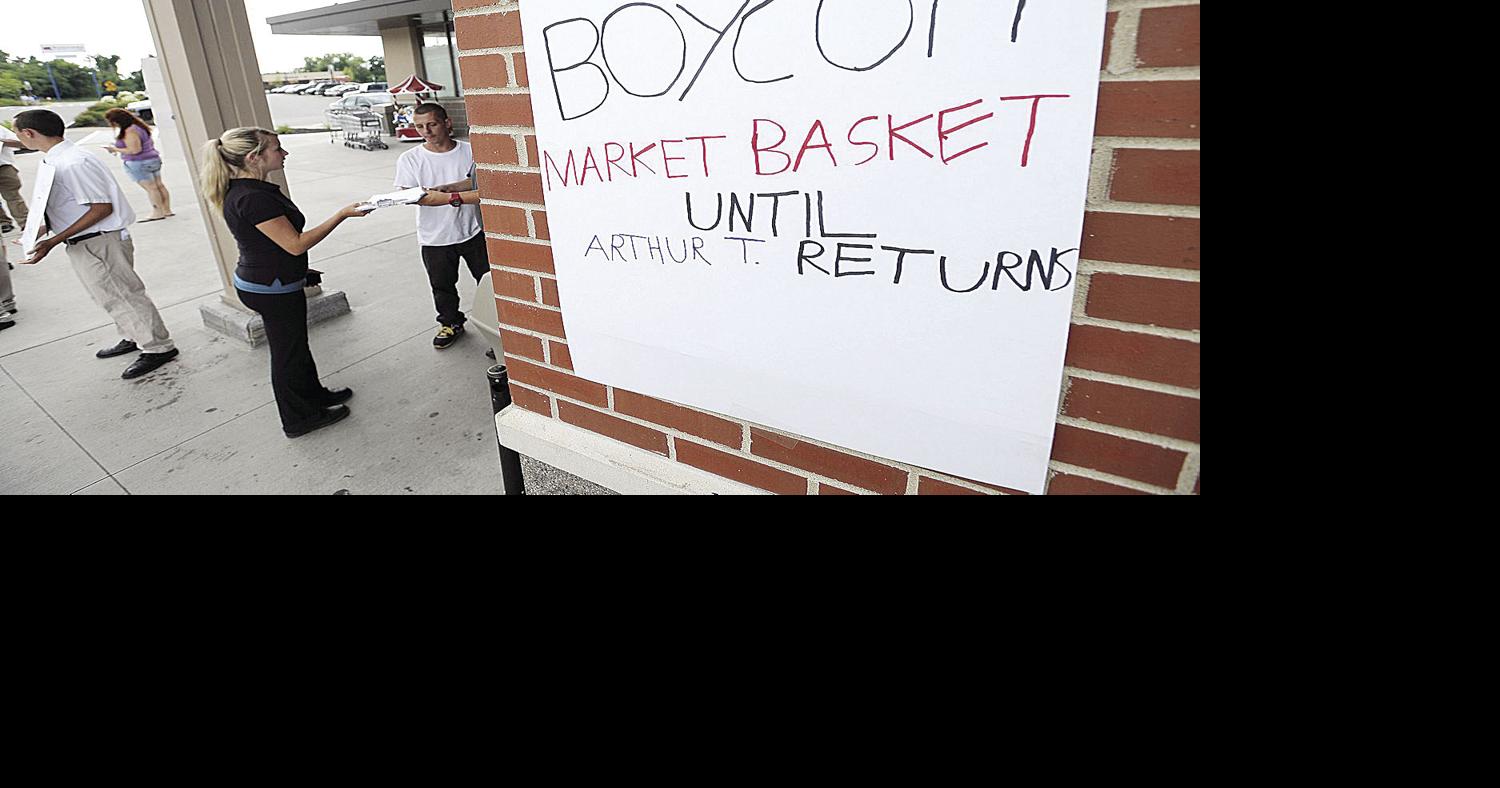 BOYCOTT
MARKET BASKET
UNTIL
ARTHUR T. RETURNS